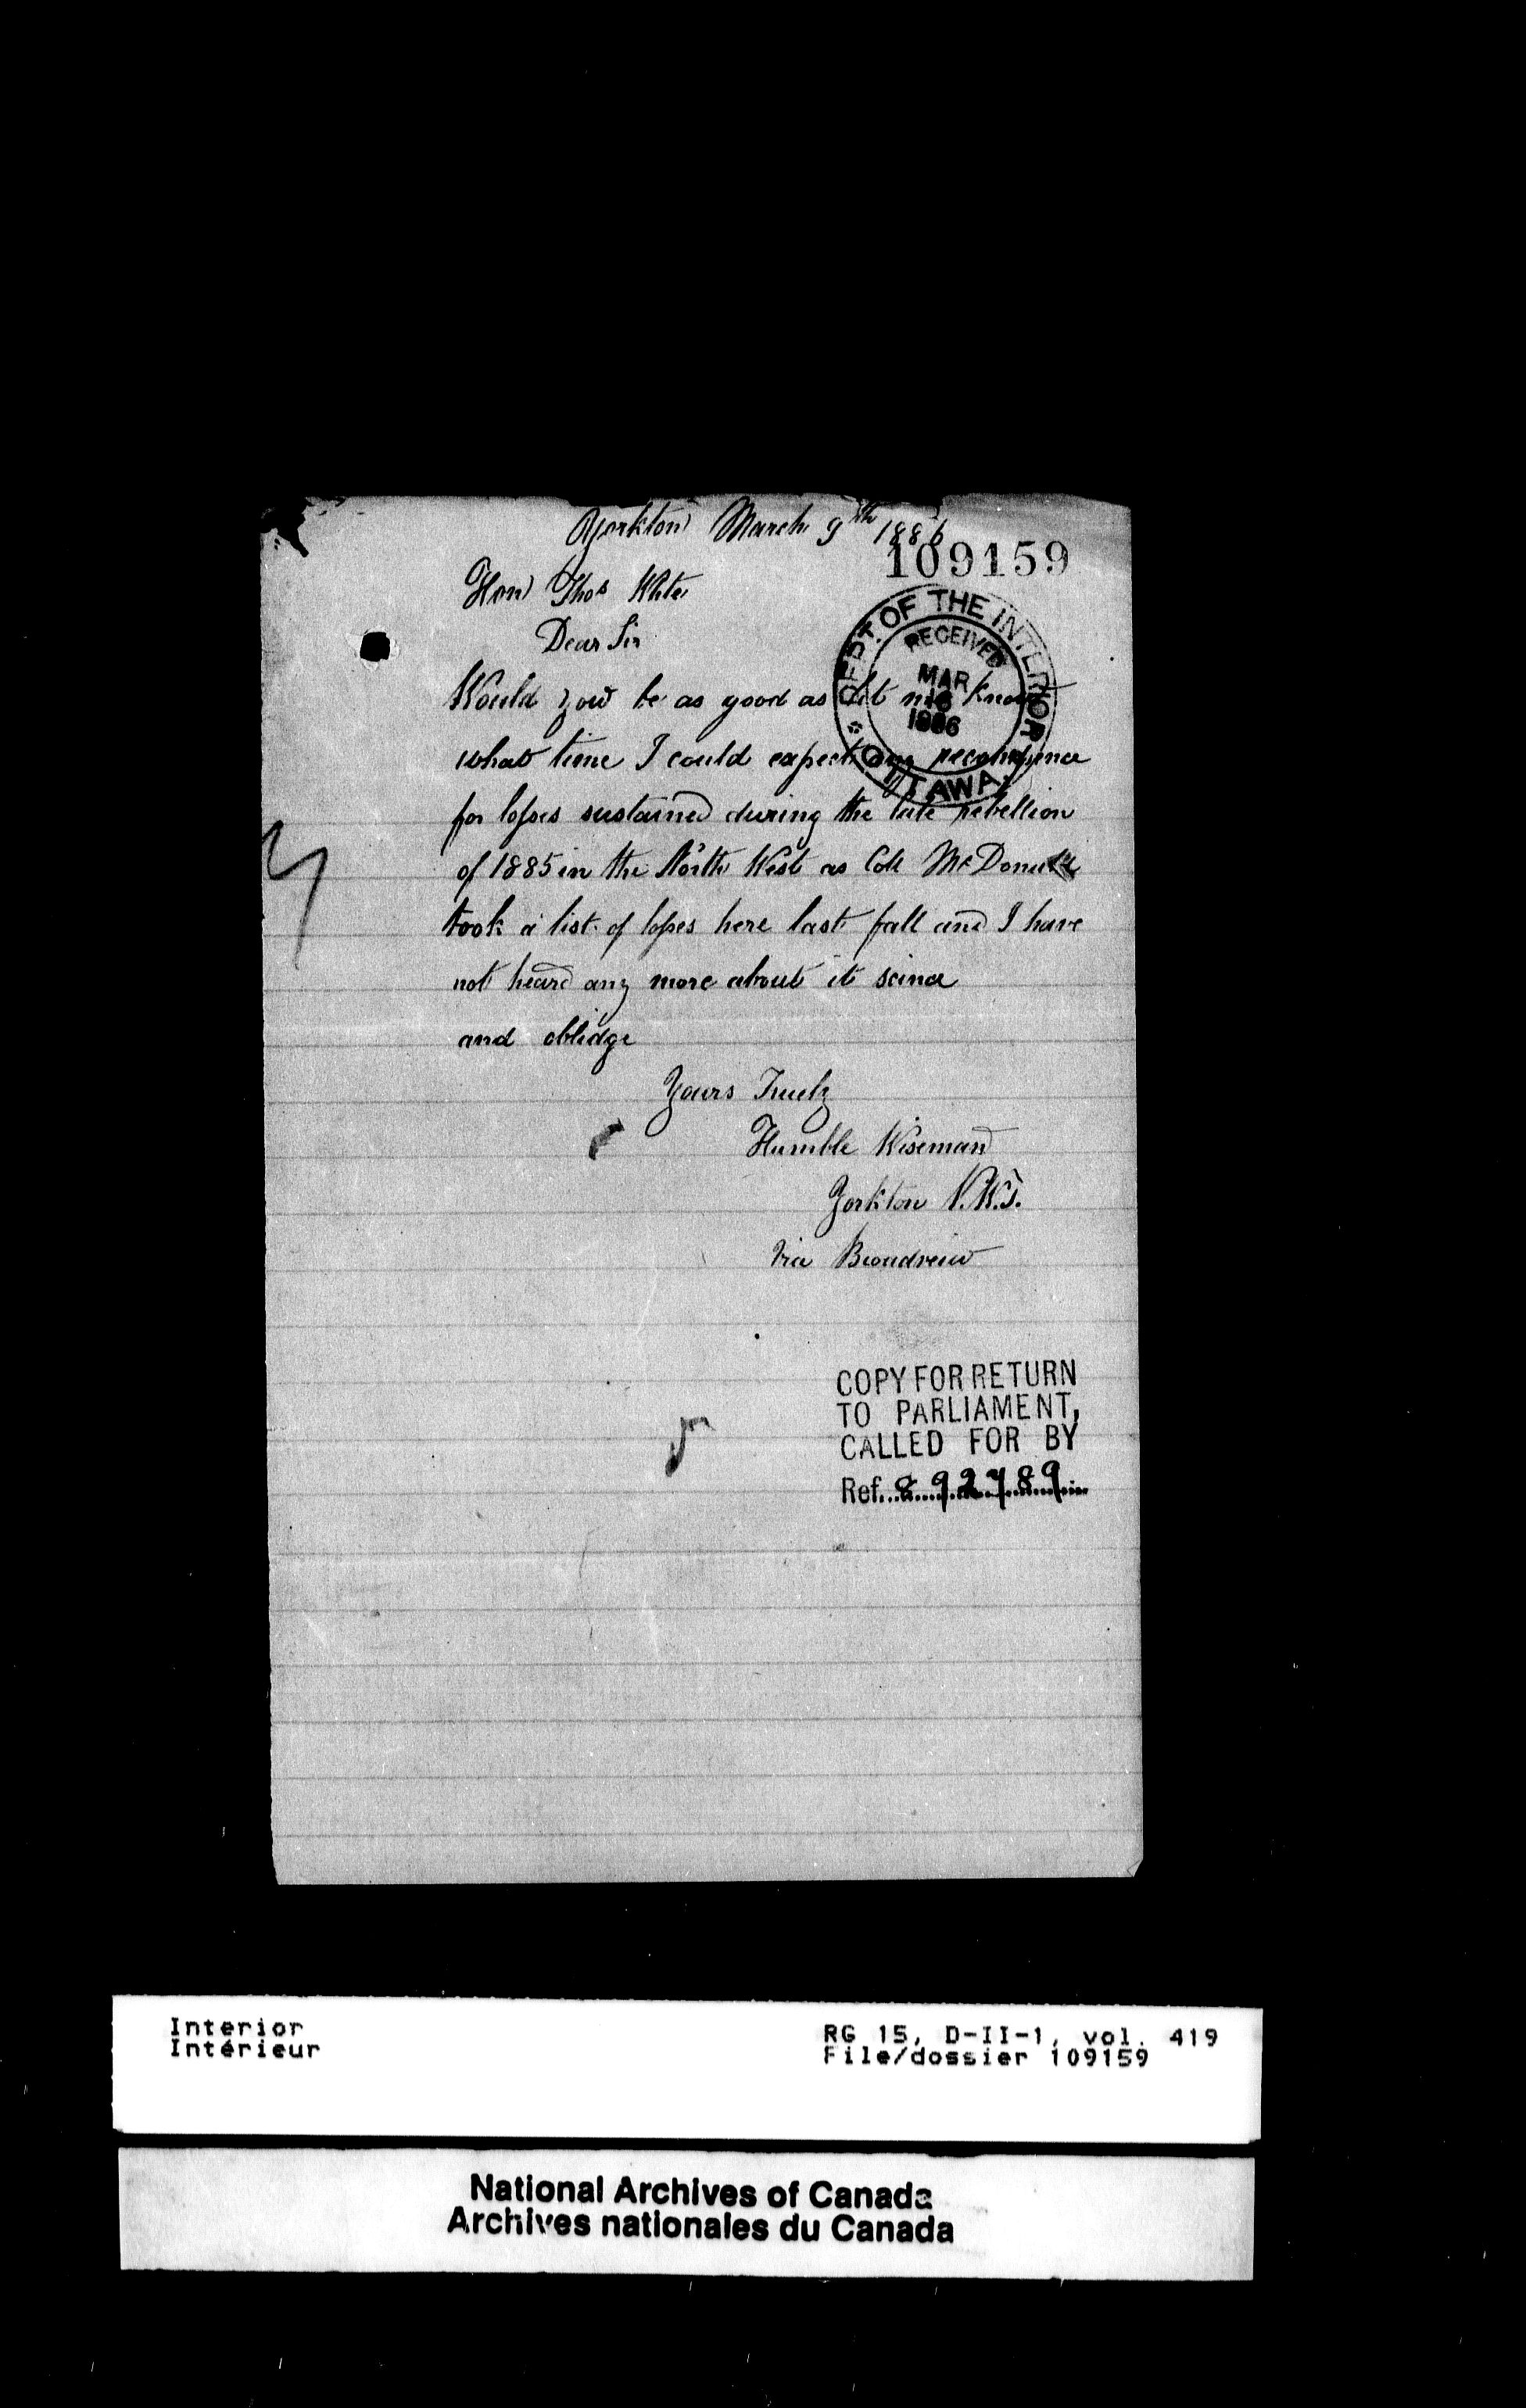 Yorkton March 9th 1886
109159
Hon Thos White
Dear Sir
DEPT. OF THE INTERIOR
RECEIVED
MAR
16
1886
OTTAWA
Would you be as good as let me know
what time I could expect any recompence
for losses sustained during the late rebellion
of 1885 in the North West as Col McDonald
took a list of losses here last fall and I have
not heard any more about it scince
and oblidge
Yours Truely
Humble Wiseman
Yorkton N.W.T.
Via Broadveiw
COPY FOR RETURN
TO PARLIAMENT,
CALLED FOR BY
Ref. 892789
Interior
Intérieur
RG 15, D-II-1, vol. 419
File/dossier 109159
National Archives of Canada
Archives nationales du Canada